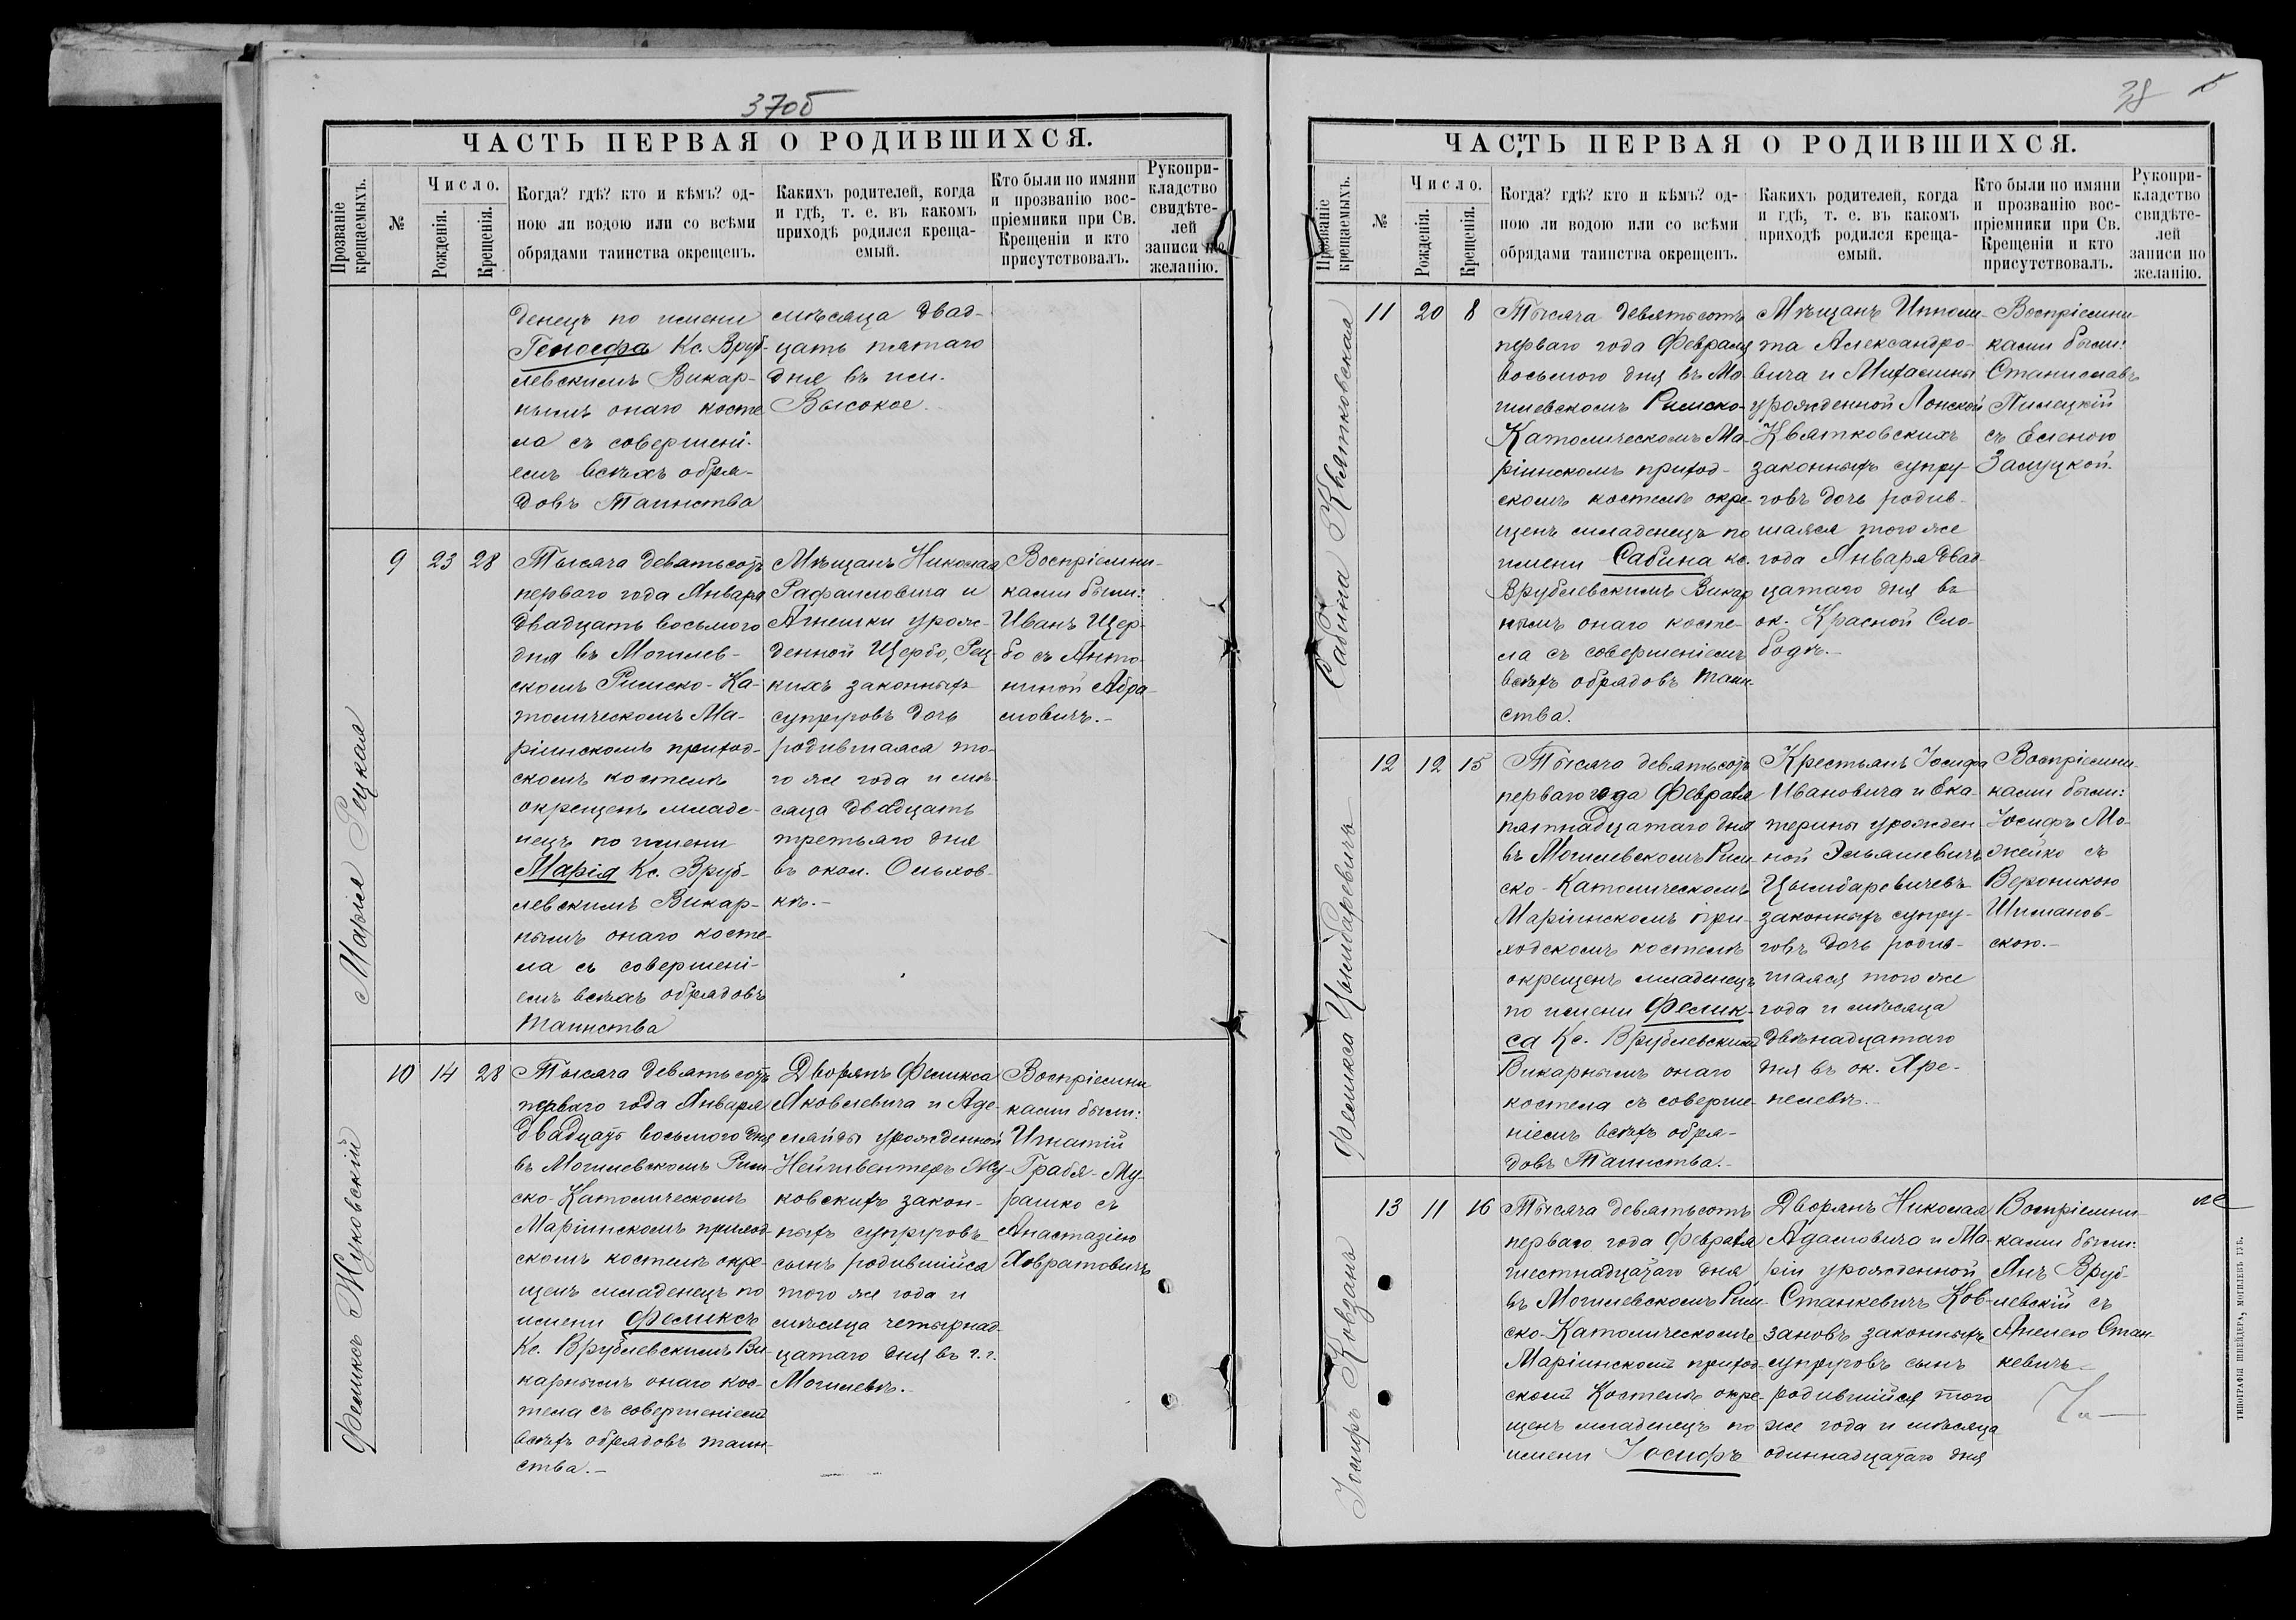 37об
ЧАСТЬ ПЕРВАЯ О РОДИВШИХСЯ.
Прозваніе крещаемыхъ.
№
Число.
Рожденія.
Крещенія.
Когда? гдѣ? кто и кѣмъ? од-
ною ли водою или со всѣми
обрядами таинства окрещенъ.
Какихъ родителей, когда
и гдѣ, т. е. въ какомъ
приходѣ родился креща-
емый.
Кто были по имяни
и прозванію вос-
пріемники при Св.
Крещеніи и кто
присутствовалъ.
Рукопри-
кладство
свидѣте-
лей
записи по
желанію.
денецъ по имени
Геноефа Кс. Вруб-
левскимъ Викар-
нымъ онаго косте
ла съ совершені-
емъ всѣхъ обря-
довъ Таинства
мѣсяца двад-
цать пятаго
дня въ им.
Высокое.
Марія Рецкая
9 23 28
Тысяча деватьсотъ
перваго года Января
двадцать восьмого
дня въ Могилев-
скомъ Римско-Ка-
толическомъ Ма-
ріинскомъ приход-
скомъ костелѣ
окрещенъ младе-
нецъ по имени
Марія Кс. Вруб-
левскимъ Викар-
нымъ онаго косте-
ла съ совершені-
емъ всѣхъ обрядовъ
таинства
Мѣщанъ Николая
Рафаиловича и
Агнешки урож-
денной Щербо, Рец-
кихъ законныхъ
супруговъ дочь
родившаяся то-
го же года и мѣ-
сяца двадцать
третьяго дня
въ окол. Ольхов-
кѣ.-
Воспріемни-
ками были:
Иванъ Щер-
бо съ Анто-
ниной Абра-
мовичъ.-
Феликсъ Жуковскій
10 14 28
Тысяча девятьсотъ
перваго года Января
двадцать восьмого дня
въ Могилевскомъ Рим-
ско-Католическомъ
Маріинскомъ приход-
скомъ костелѣ окре-
щенъ младенецъ по
имени Феликсъ
Кс. Врублевскимъ Ви-
карнымъ онаго кос-
тела съ совершеніемъ
всѣхъ обрядовъ таин-
ства.-
Дворянъ Феликса
Яковлевича и Аде-
лаиды урожденной
Нейтвентеръ Жу-
ковскихъ закон-
ныхъ супруговъ
сынъ родившійся
того же года и
мѣсяца четырнад-
цатаго дня въ г. г.
Могилевѣ.-
Воспріемни
ками были:
Игнатій
Грабя-Му-
рашко съ
Анастазіею
Ховратовичъ
38
ЧАСТЬ ПЕРВАЯ О РОДИВШИХСЯ.
Прозваніе крещаемыхъ.
№
Число.
Рожденія.
Крещенія.
Когда? гдѣ? кто и кѣмъ? од-
ною ли водою или со всѣми
обрядами таинства окрещенъ.
Какихъ родителей, когда
и гдѣ, т. е. въ какомъ
приходѣ родился креща-
емый.
Кто были по имяни
и прозванію вос-
пріемники при Св.
Крещеніи и кто
присутствовалъ.
Рукопри-
кладство
свидѣте-
лей
записи по
желанію.
Сабина Квятковская
11 20 8
Тысяча девятьсотъ
перваго года Февраля
восьмого дня въ Мо-
гилевскомъ Римско-
Католическомъ Ма-
ріинскомъ приход-
скомъ костелѣ окре-
щенъ младенецъ по
имени Сабина кс.
Врублевскимъ Викар
нымъ онаго косте-
ла съ совершеніемъ
всѣхъ обрядовъ таин-
ства.
Мѣщанъ Ипполи-
та Александро-
вича и Михалины
урожденной Лонской
Квятковскихъ
законныхъ супру-
говъ дочь родив-
шаяся того же
года Января двад-
цатаго дня въ
ок. Красной Сло-
бодѣ.-
Воспріемни-
ками были:
Станиславъ
Пилецкій
съ Еленою
Залуцкой.
Феликса Цымбаревичъ
12 12 15
Тысяча девятьсотъ
перваго года Февраля
пятнадцатаго дня
въ Могилевскомъ Рим-
ско-Католическомъ
Маріинскомъ при-
ходскомъ костелѣ
окрещенъ младенецъ
по имени Фелик-
са Кс. Врублевскимъ
Викарнымъ онаго
костела съ соверше-
ніемъ всѣхъ обря-
довъ Таинства.-
Крестьянъ Іосифа
Ивановича и Ека-
терины урожден-
ной Эльяшевичъ
Цымбаревичевъ
законныхъ супру-
говъ дочь родив-
шаяся того же
года и мѣсяца
двѣнадцатаго
дня въ ок. Хре-
пелевѣ.-
Воспріемни-
ками были:
Іосифъ Мо-
жейко съ
Вероникою
Шиманов-
скою.-
Іосифъ Ковзанъ
13 11 16
Тысяча девятьсотъ
перваго года Февраля
шестнадцатаго дня
въ Могилевскомъ Рим-
ско-Католическомъ
Маріинскомъ приход-
скомъ Костелѣ окре-
щенъ младенецъ по
имени Іосифъ
Дворянъ Николая
Адамовича и Ма-
ріи урожденной
Станкевичъ Ков-
зановъ законныхъ
супруговъ сынъ
родившійся того
же года и мѣсяца
одиннадцатаго дня
Воспріемни-
ками были:
Янъ Вруб-
левскій съ
Анелею Стан-
кевичъ-
ТИПОГРАФІЯ ШНЕЙДЕРА, МОГИЛЕВЪ ГУБ.